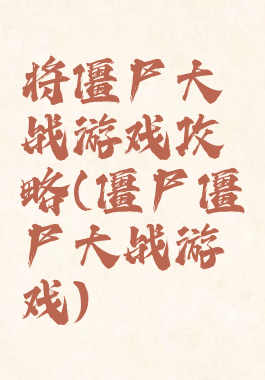 将僵尸大
战游戏攻
略(僵尸僵
尸大战游
戏)